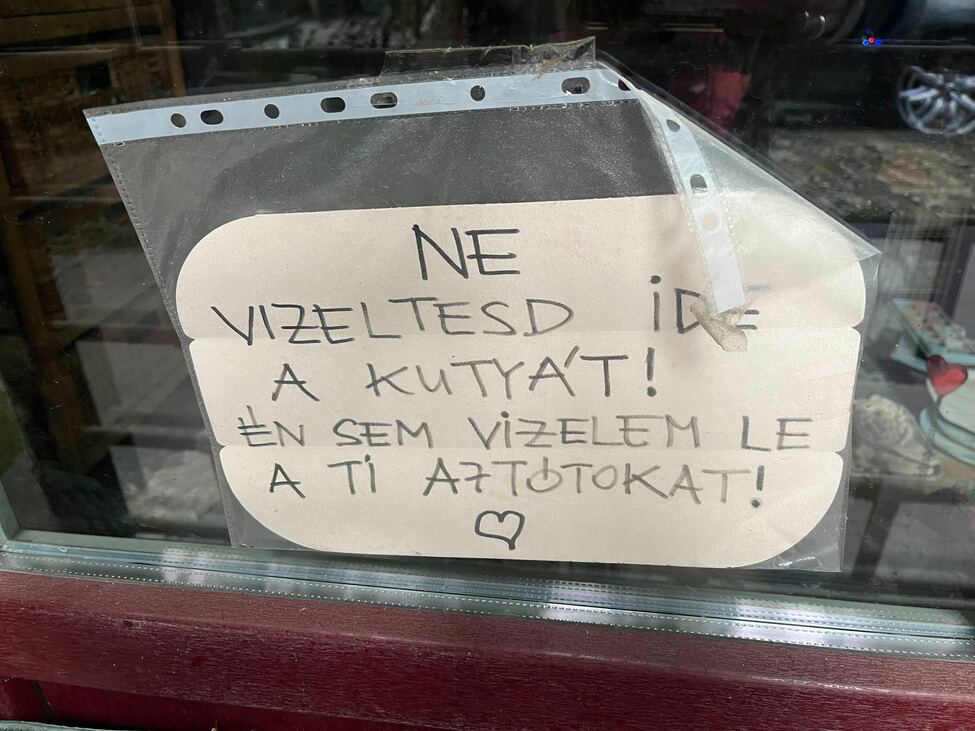 NE
VIZELTESD IDE
A KUTYÁT!
ÉN SEM VIZELEM LE
A TI AJTÓTOKAT!